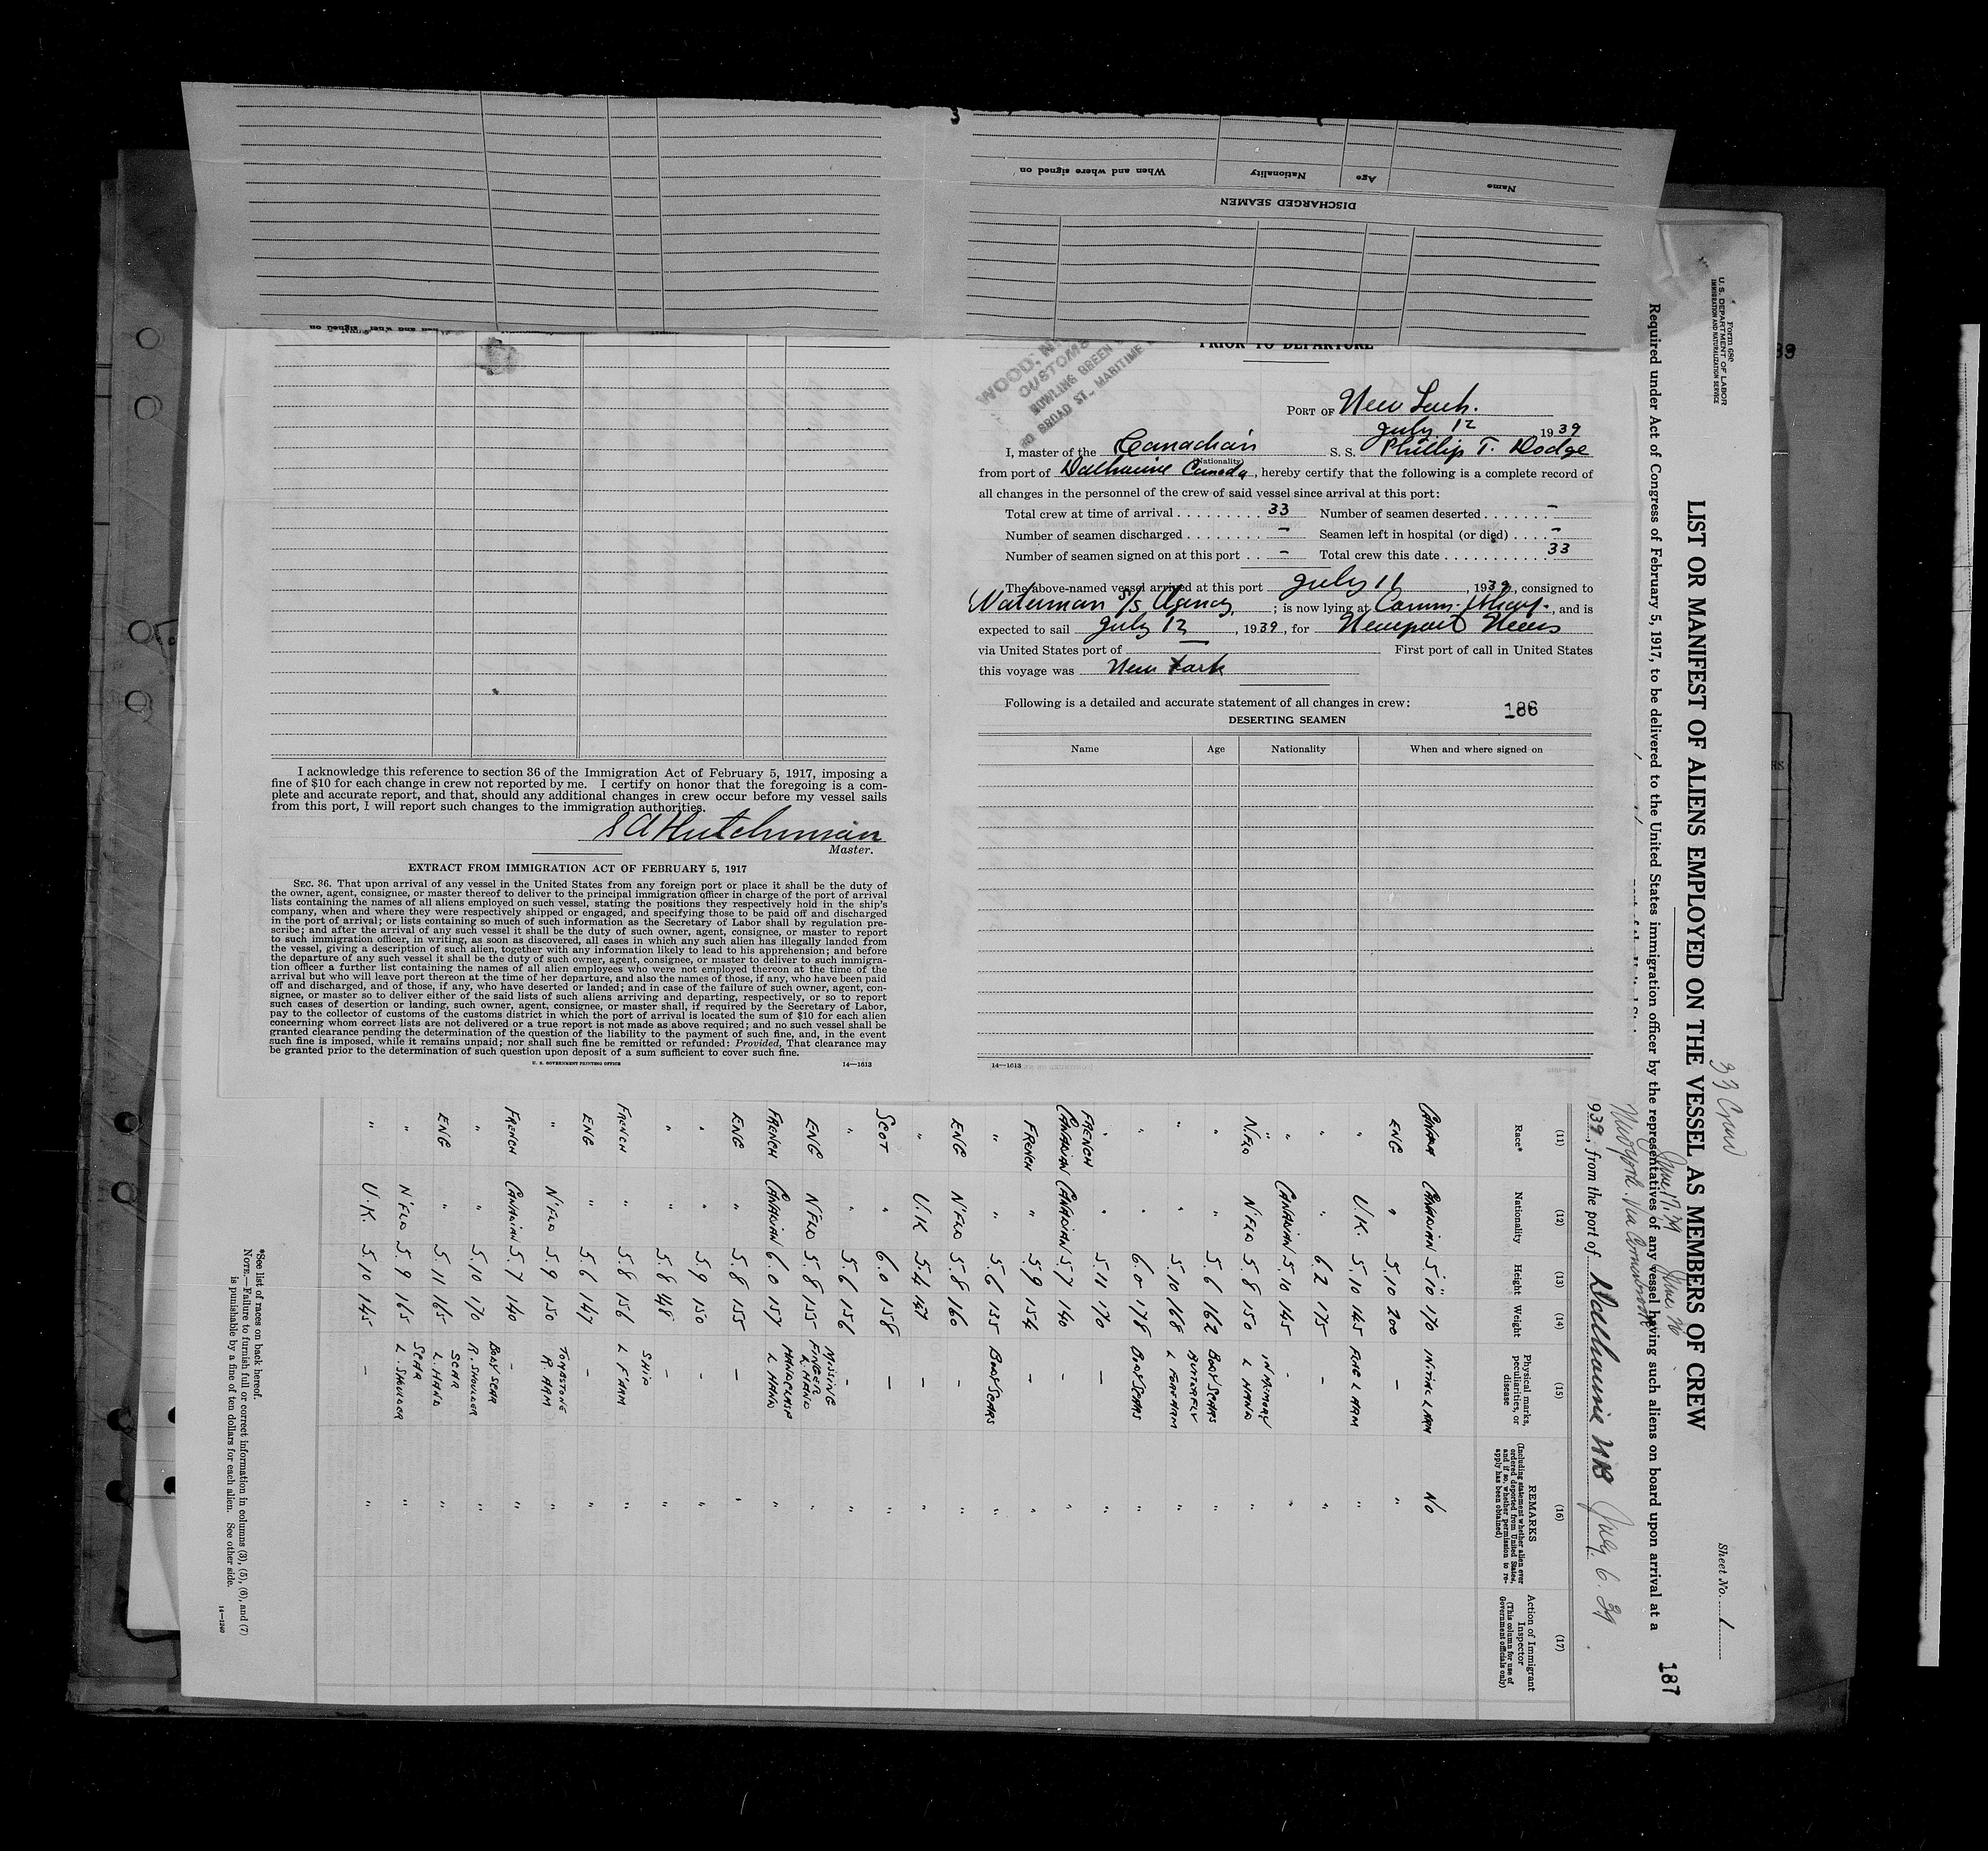 When and where signed on
Nationality
Age
Name
DISCHARGED SEAMEN
WOOD,
CUSTOMS
BOWLING GREEN
80 BROAD ST., MARITIME
PRIOR TO DEPARTURE
PORT OF New York.
July 12, 1939
I, master of the Canadian S. S. Phillip T. Dodge
(Nationality)
from port of Dalhousie Canada, hereby certify that the following is a complete record of
all changes in the personnel of the crew of said vessel since arrival at this port:
Total crew at time of arrival . . . . . . . . . 33 Number of seamen deserted . . . . . . . –
Number of seamen discharged . . . . . . . . – Seamen left in hospital (or died) . . . . –
Number of seamen signed on at this port . . – Total crew this date . . . . . . . . . . 33
The above-named vessel arrived at this port July 11, 1939, consigned to
Waterman S/S Agency; is now lying at Comm. Wharf., and is
expected to sail July 12, 1939, for Newport News
via United States port of First port of call in United States
this voyage was New York
Following is a detailed and accurate statement of all changes in crew:
186
DESERTING SEAMEN
Name Age Nationality When and where signed on
14—1613
I acknowledge this reference to section 36 of the Immigration Act of February 5, 1917, imposing a
fine of $10 for each change in crew not reported by me. I certify on honor that the foregoing is a com-
plete and accurate report, and that, should any additional changes in crew occur before my vessel sails
from this port, I will report such changes to the immigration authorities.
S A Hutchinson
Master.
EXTRACT FROM IMMIGRATION ACT OF FEBRUARY 5, 1917
SEC. 36. That upon arrival of any vessel in the United States from any foreign port or place it shall be the duty of
the owner, agent, consignee, or master thereof to deliver to the principal immigration officer in charge of the port of arrival
lists containing the names of all aliens employed on such vessel, stating the positions they respectively hold in the ship's
company, when and where they were respectively shipped or engaged, and specifying those to be paid off and discharged
in the port of arrival; or lists containing so much of such information as the Secretary of Labor shall by regulation pre-
scribe; and after the arrival of any such vessel it shall be the duty of such owner, agent, consignee, or master to report
to such immigration officer, in writing, as soon as discovered, all cases in which any such alien has illegally landed from
the vessel, giving a description of such alien, together with any information likely to lead to his apprehension; and before
the departure of any such vessel it shall be the duty of such owner, agent, consignee, or master to deliver to such immigra-
tion officer a further list containing the names of all alien employees who were not employed thereon at the time of the
arrival but who will leave port thereon at the time of her departure, and also the names of those, if any, who have been paid
off and discharged, and of those, if any, who have deserted or landed; and in case of the failure of such owner, agent, con-
signee, or master so to deliver either of the said lists of such aliens arriving and departing, respectively, or so to report
such cases of desertion or landing, such owner, agent, consignee, or master shall, if required by the Secretary of Labor,
pay to the collector of customs of the customs district in which the port of arrival is located the sum of $10 for each alien
concerning whom correct lists are not delivered or a true report is not made as above required; and no such vessel shall be
granted clearance pending the determination of the question of the liability to the payment of such fine, and, in the event
such fine is imposed, while it remains unpaid; nor shall such fine be remitted or refunded: Provided, That clearance may
be granted prior to the determination of such question upon deposit of a sum sufficient to cover such fine.
U. S. GOVERNMENT PRINTING OFFICE 14—1613
Form 680
U. S. DEPARTMENT OF LABOR
IMMIGRATION AND NATURALIZATION SERVICE
33 Crew
Sheet No. 1
LIST OR MANIFEST OF ALIENS EMPLOYED ON THE VESSEL AS MEMBERS OF CREW
Required under Act of Congress of February 5, 1917, to be delivered to the United States immigration officer by the representatives of any vessel having such aliens on board upon arrival at a
187
June 17, 39
New York via Cornerbrook
939, from the port of Dalhousie NB July 6. 39
(11) (12) (13) (14) (15) (16) (17)
Race* Nationality Height Weight Physical marks, peculiarities, or disease REMARKS (Including statement whether alien ever ordered deported from United States, and if so, whether permission to re-apply has been obtained) Action of Immigrant Inspector (This column for use of Government officials only)
CANADIAN 5'10" 170 INITIAL L ARM NO
ENG " 5.10 200 – "
" U.K. 5 10 145 L ARM "
" " 6.2 175 – "
" CANADIAN 5 10 145 - "
N'FLD N'FLD 5.8 150 IN MEMORY L HAND "
" " 5.6 162 BODY SCARS "
" " 5.10 168 BUTTERFLY L FOREARM "
" " 6.0 178 BODY SCARS "
" " 5.11 170 – "
FRENCH CANADIAN CANADIAN 5 7 140 - "
FRENCH " 5.9 154 - "
" " 5.6 135 BODY SCARS "
ENG N'FLD 5.8 160 - "
" U.K 5.4 147 – "
SCOT " 6.0 158 – "
" " 5.6 156 - "
ENG N'FLD 5.8 155 MISSING FINGER L. HAND "
FRENCH CANADIAN 6.0 157 HANDCLASP L HAND "
ENG " 5.8 155 – "
" " 5.9 150 "
" " 5.8 148 – "
FRENCH " 5.8 156 SHIP L F'ARM "
ENG " 5.6 147 – "
" N'FLD 5.9 150 TOMBSTONE R. ARM "
FRENCH CANADIAN 5.7 140 – "
" " 5.10 170 BODY SCAR R. SHOULDER "
ENG " 5.11 165 SCAR L. HAND "
" N'FLD 5.9 165 SCAR L. SHOULDER "
" U.K. 5.10 145 – "
*See list of races on back hereof.
NOTE.—Failure to furnish full or correct information in columns (3), (5), (6), and (7)
is punishable by a fine of ten dollars for each alien. See other side.
14—1240